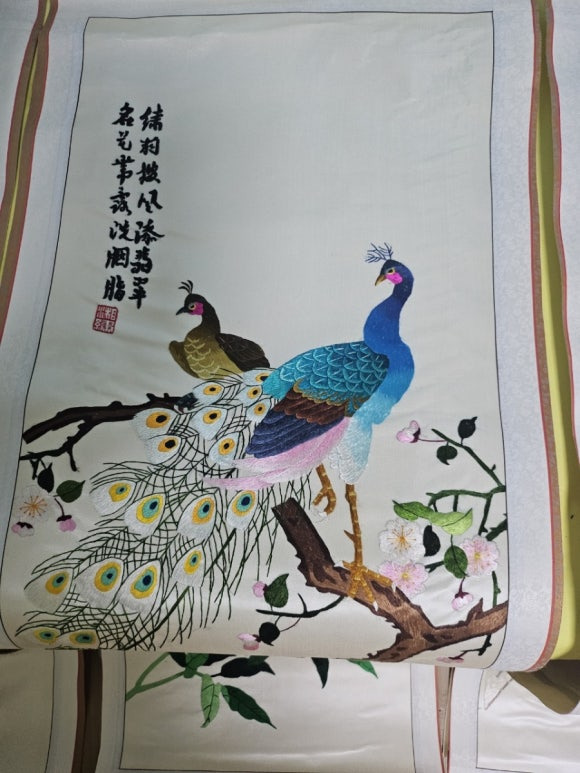 绣羽披风添翡翠
名花带露洗胭脂